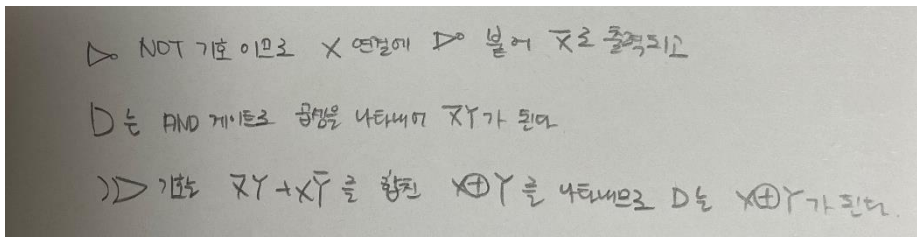 ▷∘ NOT 기호 이므로 X 연결에 ▷∘ 붙어 X̅로 출력되고
D는 AND 게이트로 곱셈을 나타내어 X̅Y가 된다
))▷ 기호는 X̅Y+XY̅를 합친 X⊕Y를 나타내므로 D는 X⊕Y가 된다.